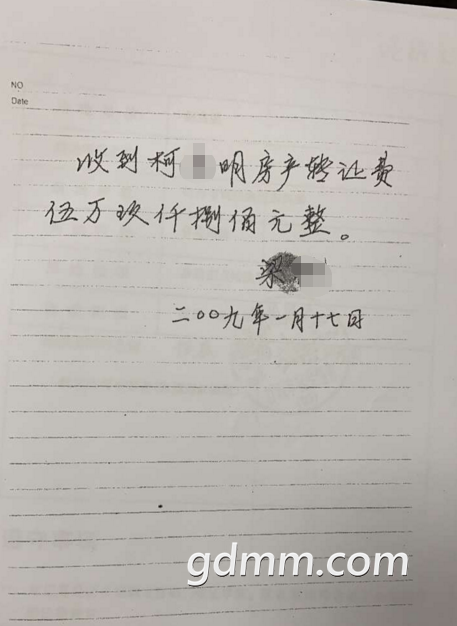 NO
Date
收到柯 明房产转让费
伍万玖仟捌佰元整。
梁
二〇〇九年一月十七日
gdmm.com